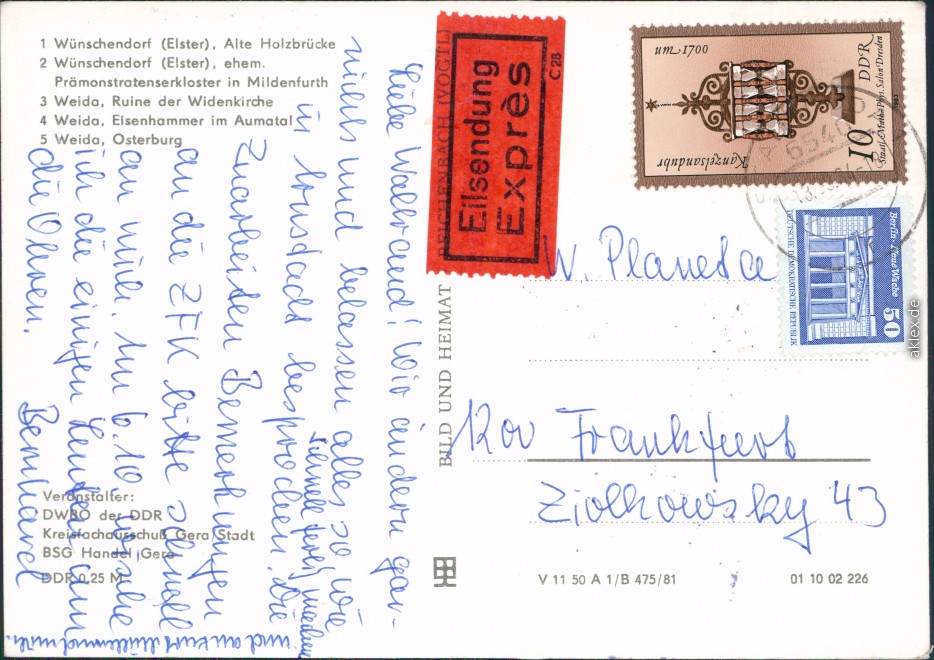 1 Wünschendorf (Elster), Alte Holzbrücke
2 Wünschendorf (Elster), ehem.
Prämonstratenserkloster in Mildenfurth
3 Weida, Ruine der Widenkirche
4 Weida, Eisenhammer im Aumatal
5 Weida, Osterburg
Veranstalter:
DWBO der DDR
Kreisfachausschuß Gera/Stadt
BSG Handel Gera
DDR 0,25 M
Liebe Waltraud! Wir ändern gar-
nichts und belassen alles so wie
in besprochen. Die
schnell
Zuarbeiten Bemerkungen
an die ZFK bitte schnell
an mich. Am 6.10
ich die einigen Leuten am
Bernhard
BILD UND HEIMAT REICHENBACH (VOGTL)
Eilsendung
Exprès
C28
um 1700
Kanzelsanduhr
DDR
10
Staatl. Math.-Phys. Salon Dresden
Berlin · Neue Wache
50
DEUTSCHE DEMOKRATISCHE REPUBLIK
W. Planeta
1200 Frankfurt
Ziolkowsky 43
V 11 50 A 1/B 475/81
01 10 02 226
aklex.de